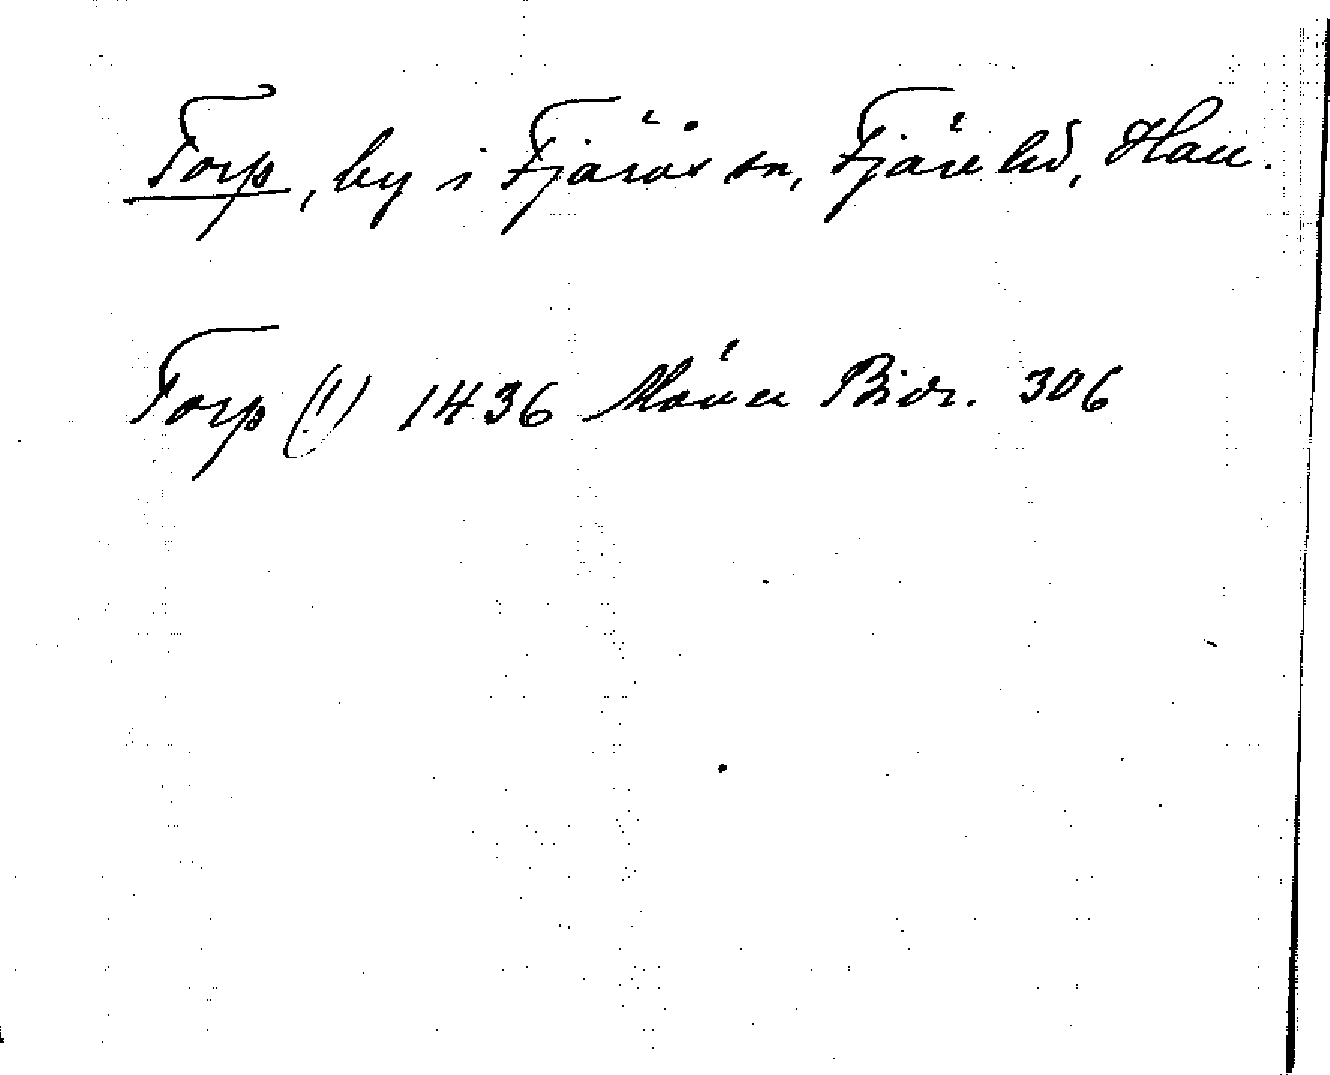 Torp, by i Fjärås sn, Fjäre hd, Hall.
Torp (!) 1436 Bidr. 306